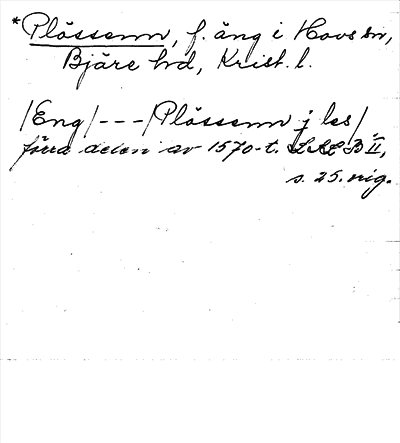 *Plössenn, f. äng i Hovs sn,
Bjäre hd, Krist. l.
/Eng/---/Plössenn j les/
förra delen av 1570-t. LAL B II,
s. 25. nig.